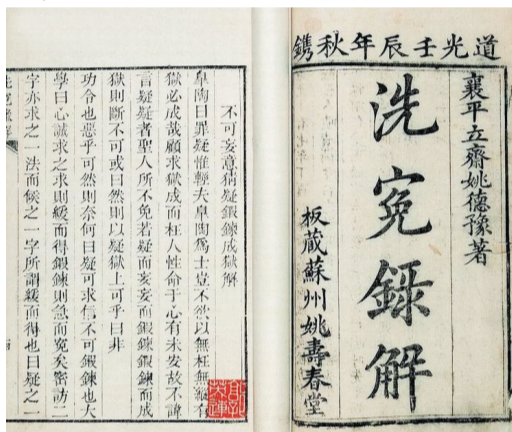 道光壬辰年秋鐫
襄平立齋姚德豫著
洗寃錄解
板藏蘇州姚壽春堂
不可妄意猜疑鍛鍊成獄解
皐陶曰罪疑惟輕夫皐陶爲士豈不欲以無枉無縱有
獄必成哉顧求獄成而枉人性命于心有未安故不諱
言疑疑者聖人所不免若疑而妄妄而鍛鍊鍛鍊而成
獄則斷不可或曰然則以疑獄上可乎曰非
功令也惡乎可然則奈何曰疑可求信不可鍛鍊也大
學曰心誠求之求則緩而得鍛鍊則急而寃矣密訪二
字亦求之一法而候之一字所謂緩而得也曰疑之一